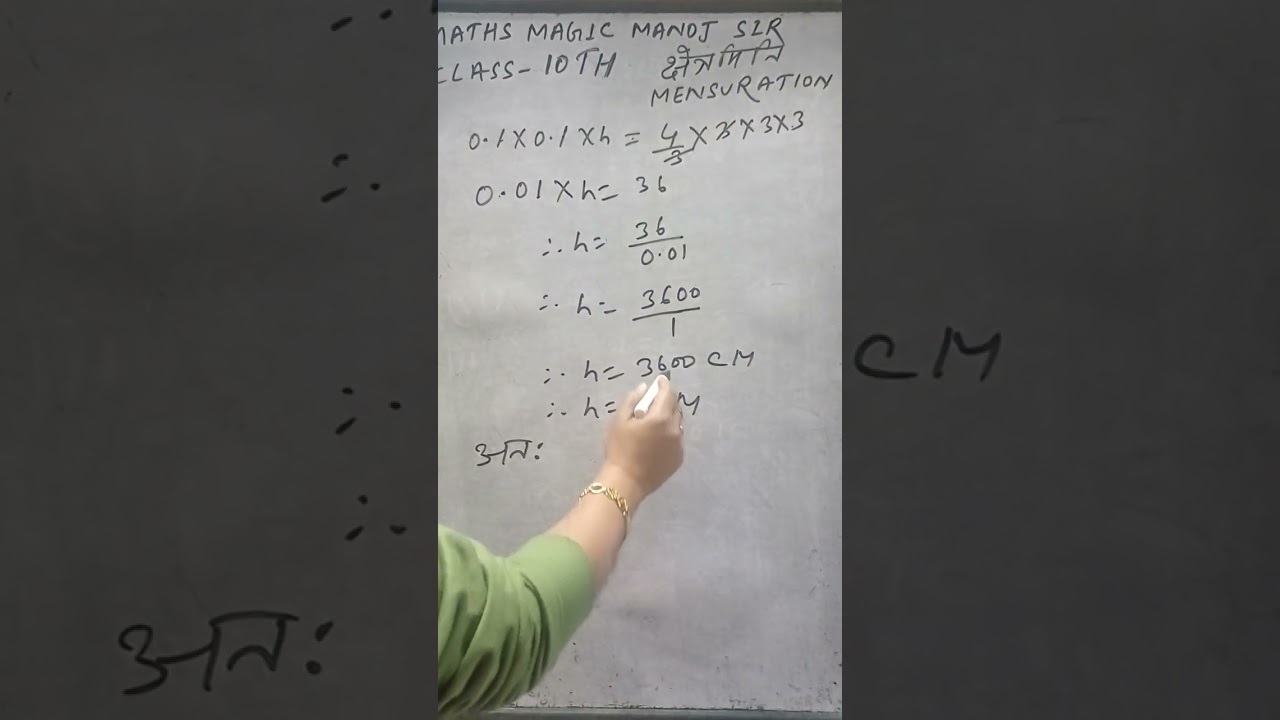 MATHS MAGIC MANOJ SIR
CLASS-10TH क्षेत्रमिति
MENSURATION
0.1×0.1×h = 4/3 × 3×3×3
0.01×h = 36
∴ h = 36/0.01
∴ h = 3600/1
∴ h = 3600 CM
∴ h = M
अतः